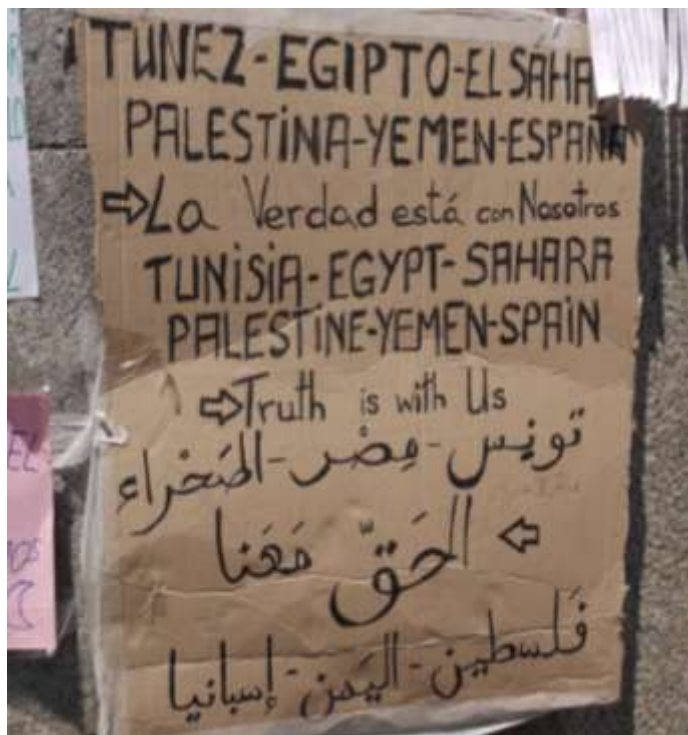 TUNEZ-EGIPTO-EL SAHA
PALESTINA-YEMEN-ESPAÑA
⇨La Verdad está con Nosotros
TUNISIA-EGYPT-SAHARA
PALESTINE-YEMEN-SPAIN
⇨Truth is with Us
تونِس - مِصْر - الصَحْراء
⇦ الحَقّ مَعَنا
فَلسطين - اليَمن - إسبانيا
EL